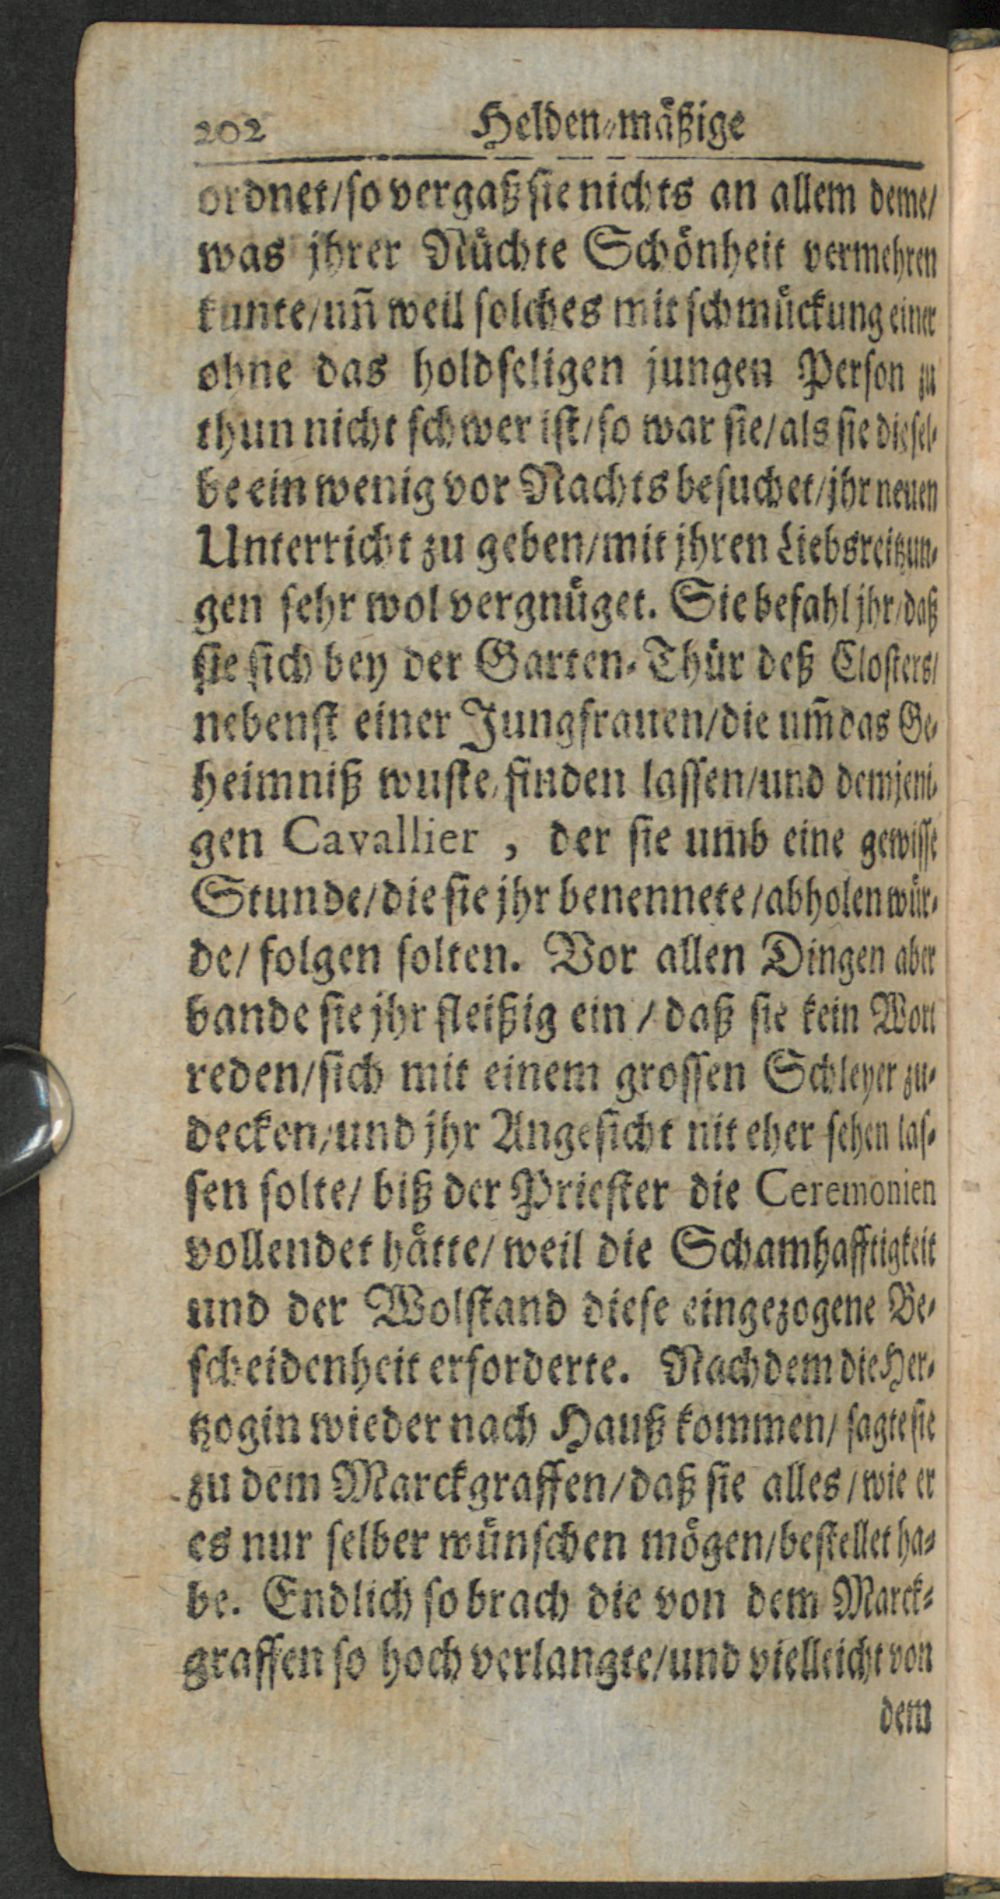 202 Helden-mäßige
ordnet/so vergaß sie nichts an allem deme/
was jhrer Nüchte Schönheit vermehren
kunte/uñ weil solches mit schmückung einer
ohne das holdseligen jungen Person zu
thun nicht schwer ist/so war sie/als sie diesel-
be ein wenig vor Nachts besuchet/jhr neuen
Unterricht zu geben/mit jhren Liebsreitzun-
gen sehr wol vergnüget. Sie befahl jhr/daß
sie sich bey der Garten-Thür deß Closters/
nebenst einer Jungfrauen/die um̃ das Ge-
heimniß wuste/finden lassen/und demjeni-
gen Cavallier , der sie umb eine gewisse
Stunde/die sie jhr benennete/abholen wür-
de/ folgen solten. Vor allen Dingen aber
bande sie jhr fleißig ein / daß sie kein Wort
reden/sich mit einem grossen Schleyer zu-
decken/und jhr Angesicht nit eher sehen las-
sen solte/ biß der Priester die Ceremonien
vollendet hätte/ weil die Schamhafftigkeit
und der Wolstand diese eingezogene Be-
scheidenheit erforderte. Nachdem die Her-
tzogin wieder nach Hauß kommen/ sagte sie
zu dem Marckgraffen/daß sie alles/wie er
es nur selber wünschen mögen/bestellet ha-
be. Endlich so brach die von dem Marck-
graffen so hoch verlangte/und vielleicht von
dem